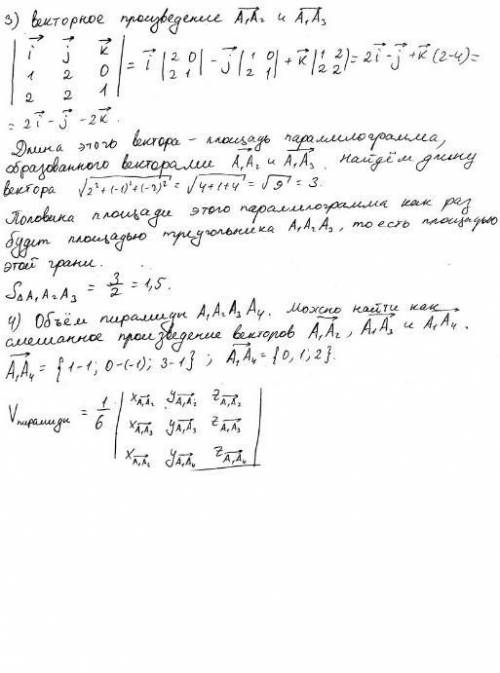 3) векторное произведение A₁A₂ и A₁A₃
| i j k |
| 1 2 0 | = i |2 0; 2 1| - j |1 0; 2 1| + k |1 2; 2 2| = 2i - j + k (2-4) =
| 2 2 1 |
= 2i - j - 2k.
Длина этого вектора - площадь параллилограмма,
образованного векторами A₁A₂ и A₁A₃. Найдём длину
вектора √(2²+(-1)²+(-2)²) = √(4+1+4) = √9 = 3.
Половина площади этого параллилограмма как раз
будит площадью треугольника A₁A₂A₃, то есть площадью
этой грани.
S△A₁A₂A₃ = 3/2 = 1,5.
4) Объём пирамиды A₁A₂A₃A₄. Можно найти как
смешанное произведение векторов A₁A₂, A₁A₃ и A₁A₄.
A₁A₄ = {1-1; 0-(-1); 3-1} ; A₁A₄ = {0, 1; 2}.
Vпирамиды = 1/6 | xA₁A₂ yA₁A₂ zA₁A₂ |
| xA₁A₃ yA₁A₃ zA₁A₃ |
| xA₁A₄ yA₁A₄ zA₁A₄ |